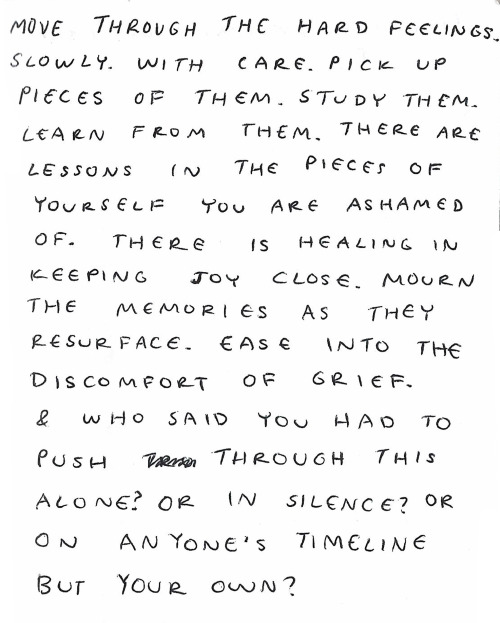 MOVE THROUGH THE HARD FEELINGS.
SLOWLY. WITH CARE. PICK UP
PIECES OF THEM. STUDY THEM.
LEARN FROM THEM. THERE ARE
LESSONS IN THE PIECES OF
YOURSELF YOU ARE ASHAMED
OF. THERE IS HEALING IN
KEEPING JOY CLOSE. MOURN
THE MEMORIES AS THEY
RESURFACE. EASE INTO THE
DISCOMFORT OF GRIEF.
& WHO SAID YOU HAD TO
PUSH THROUGH THIS
ALONE? OR IN SILENCE? OR
ON ANYONE'S TIMELINE
BUT YOUR OWN?